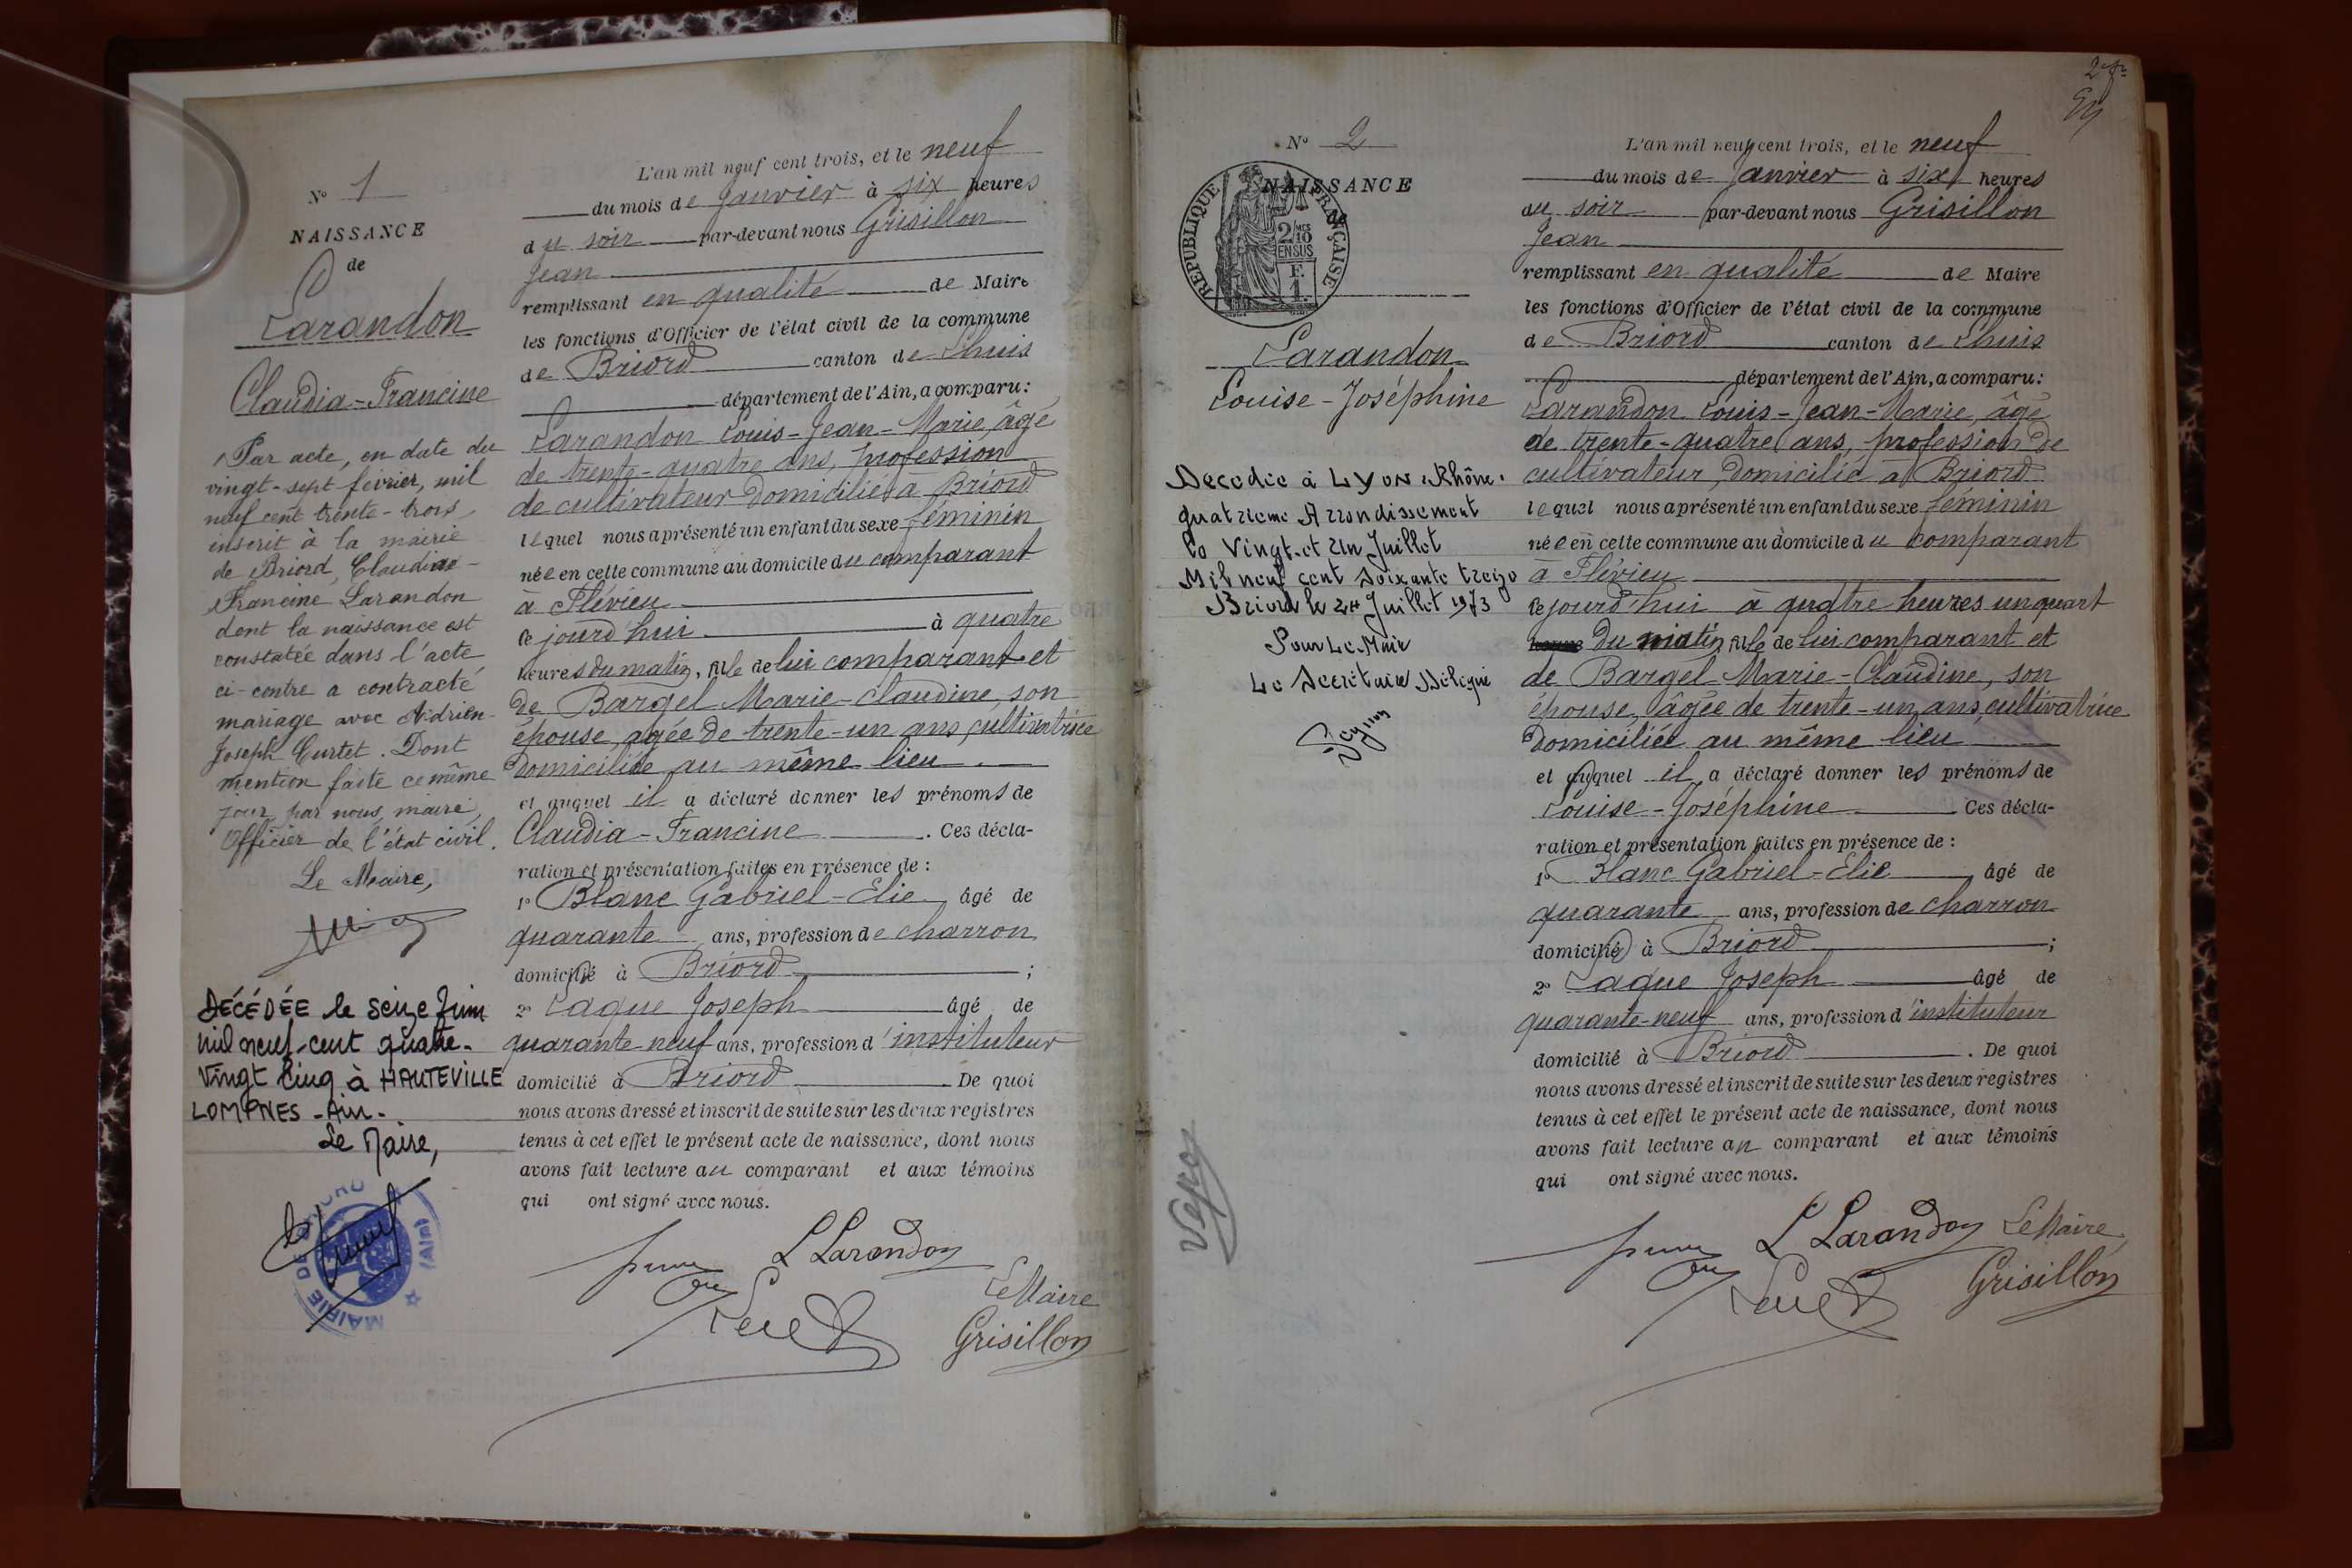 N° 1
NAISSANCE
de
Larandon
Claudia-Francine
Par acte, en date du
vingt-sept février, mil
neuf cent trente-trois,
inscrit à la mairie
de Briord, Claudia-
Francine Larandon
dont la naissance est
constatée dans l'acte
ci-contre a contracté
mariage avec Adrien-
Joseph Curtet. Dont
mention faite ce même
jour par nous, maire,
Officier de l'état civil.
Le Maire,
DÉCÉDÉE le seize Juin
mil neuf-cent quatre-
Vingt cinq à HAUTEVILLE
LOMPNES - Ain.
Le Maire,
MAIRIE DE BRIORD (AIN)
L'an mil neuf cent trois, et le neuf
du mois de Janvier à six heures
du soir par-devant nous Grisillon
Jean
remplissant en qualité de Maire
les fonctions d'Officier de l'état civil de la commune
de Briord canton de Lhuis
département de l'Ain, a comparu:
Larandon Louis-Jean-Marie, âgé
de trente-quatre ans, profession
de cultivateur domicilié à Briord
lequel nous a présenté un enfant du sexe féminin
née en cette commune au domicile du comparant
à Flévieu
ce jourd'hui à quatre
heures du matin, fille de lui comparant et
de Bargel Marie-Claudine, son
épouse, agée de trente-un ans, cultivatrice
domiciliée au même lieu.
et auquel il a déclaré donner les prénoms de
Claudia-Francine. Ces décla-
ration et présentation faites en présence de:
1° Blanc Gabriel-Elie âgé de
quarante ans, profession de charron
domicilié à Briord;
2° Laque Joseph âgé de
quarante-neuf ans, profession d'instituteur
domicilié à Briord. De quoi
nous avons dressé et inscrit de suite sur les deux registres
tenus à cet effet le présent acte de naissance, dont nous
avons fait lecture au comparant et aux témoins
qui ont signé avec nous.
L Larandon
Le Maire
Grisillon
N° 2
NAISSANCE
de
REPUBLIQUE FRANÇAISE
2/10
EN SUS
Larandon
Louise-Joséphine
Decedée à LYON, Rhône.
quatrieme Arrondissement
le Vingt-et Un Juillet
Mil neuf cent Soixante treize
Briord le 24 Juillet 1973
Pour Le Maire
Le Secrétaire Délégué
L'an mil neuf cent trois, et le neuf
du mois de Janvier à six heures
du soir par-devant nous Grisillon
Jean
remplissant en qualité de Maire
les fonctions d'Officier de l'état civil de la commune
de Briord canton de Lhuis
département de l'Ain, a comparu:
Larandon Louis-Jean-Marie, âgé
de trente-quatre ans, profession de
cultivateur, domicilié à Briord
lequel nous a présenté un enfant du sexe féminin
née en cette commune au domicile du comparant
à Flévieu
ce jourd'hui à quatre heures un quart
du matin, fille de lui comparant et
de Bargel Marie-Claudine, son
épouse, âgée de trente-un ans, cultivatrice
domiciliée au même lieu
et auquel il a déclaré donner les prénoms de
Louise-Joséphine Ces décla-
ration et présentation faites en présence de:
1° Blanc Gabriel-Elie âgé de
quarante ans, profession de charron
domicilié à Briord;
2° Laque Joseph âgé de
quarante-neuf ans, profession d'instituteur
domicilié à Briord. De quoi
nous avons dressé et inscrit de suite sur les deux registres
tenus à cet effet le présent acte de naissance, dont nous
avons fait lecture au comparant et aux témoins
qui ont signé avec nous.
L Larandon Le Maire
Grisillon